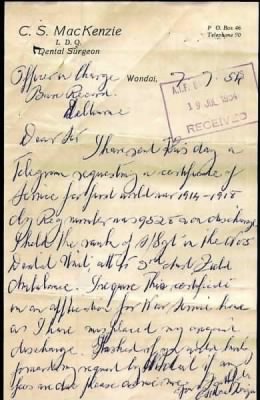 C. S. MacKenzie
L. D. Q.
Dental Surgeon
P O. Box 46
Telephone 70
Officer in Charge Wondai, 7. 7. 54
Base Records
Melbourne
A.I.F.
19 JUL 1954
RECEIVED
Dear Sir
I have sent this day a
Telegram requesting a certificate of
Service for first world war 1914-1918
my Reg number was on discharge
I held the rank of S/Sgt in the
Dental Unit, att to 3rd Aust Field
Ambulance. I require this certificate
in an application for War Service home
as I have misplaced my original
discharge.
forwarding request by
fees are due please advise me.